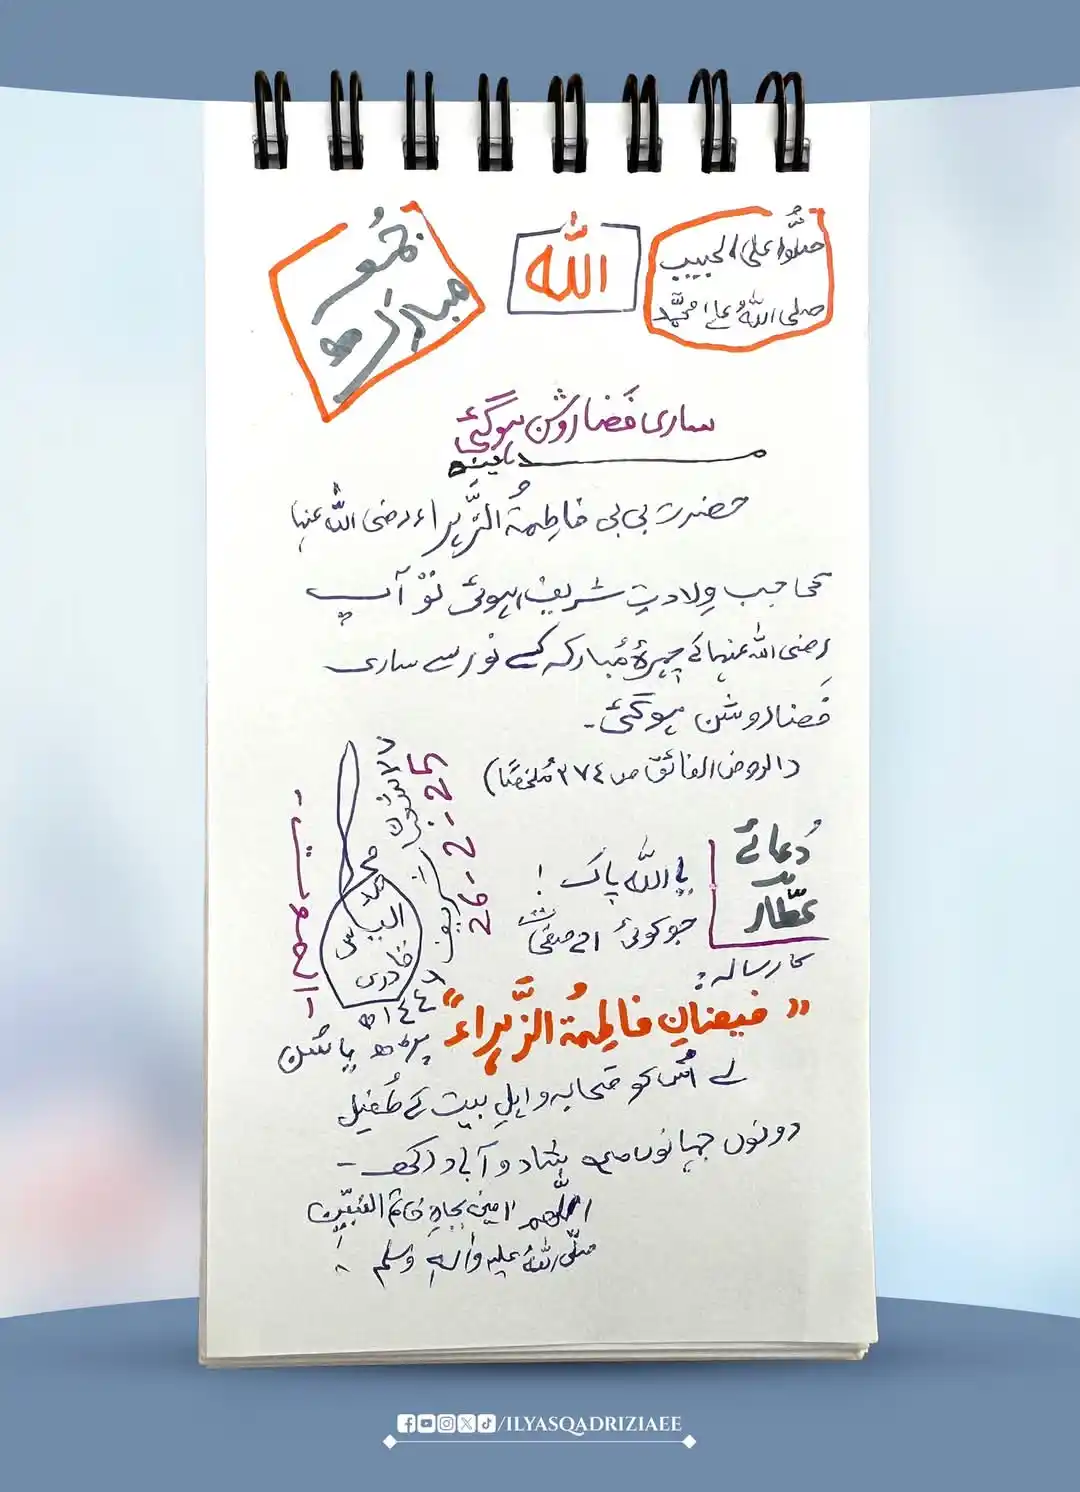 صلُّوا علی الحبیب
صلی اللہُ علیٰ محمَّد
اللہ
جُمعہ
مبارک
ساری فَضا روشن ہوگئی
حضرت بی بی فاطِمۃُ الزَّہراء رضی اللہ عنہا
کی جب وِلادتِ شریف ہوئی تَوْ آپ
رضی اللہ عنہا کے چہرۂ مُبارکہ کے نُور سے ساری
فَضا روشن ہوگئی۔
(الروض الفائق ص ۲۷۴ مُلخصًا)
دُعائے
عطّار
یا اللہ پاک!
جو کوئی
کا رسالہ:
”فیضانِ فاطِمۃُ الزَّہراء“
پڑھ یا سُن
لے اُس کو صَحابہ و اہلِ بیت کے طُفیل
دونوں جہانوں میں شاد و آباد رکھ۔
امین بجاہِ خاتم النبیّن
صلَّی اللہُ علیہ واٰلہٖ وسلم
محمد
الیاس
قادری
شریف
۱۴۴۶ھ
26-2-25
/ILYASQADRIZIAEE